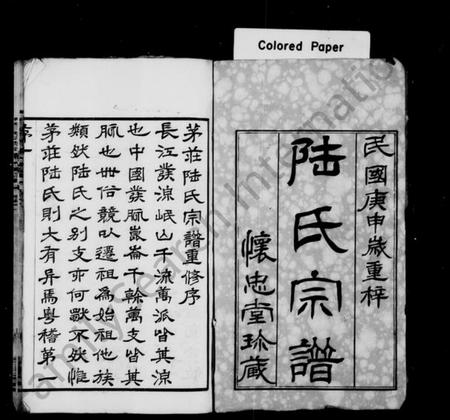 Colored Paper
民國庚申歲重梓
陸氏宗譜
懷忠堂珍藏
茅莊陸氏宗譜重修序
長江發源岷山千流萬派皆其源
也中國發脈崑崙千榦萬支皆其
脈也世俗競以遷祖為始祖他族
類然陸氏之別支亦何獸不然惟
茅莊陸氏則大有异焉粵稽第一